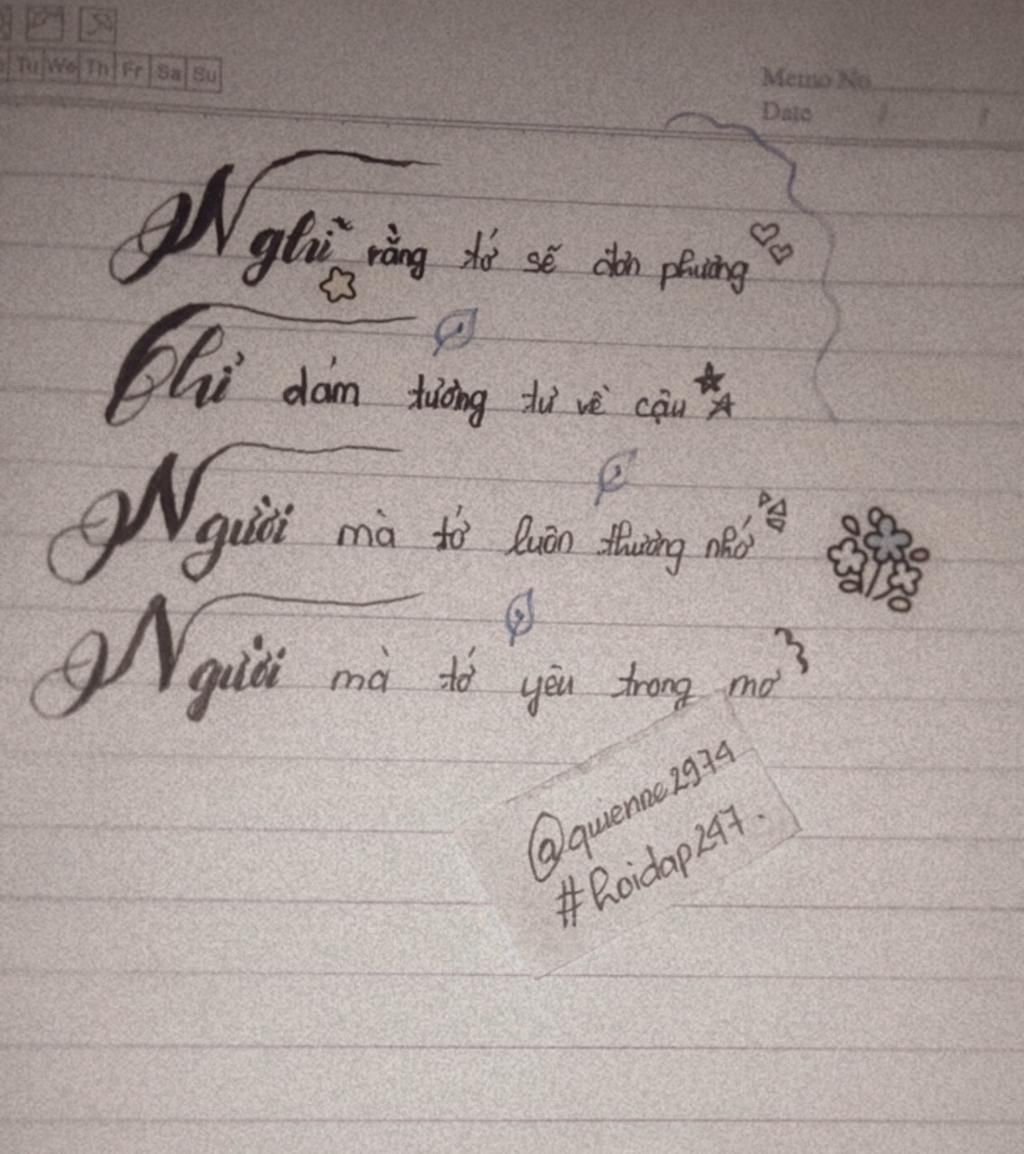 Tu We Th Fr Sa Su
Memo No.
Date / /
Nghĩ rằng tớ sẽ đơn phương
Chỉ dám tương tư về cậu
Người mà tớ luôn thương nhớ
Người mà tớ yêu trong mơ
@quienne2974
#hoidap247.